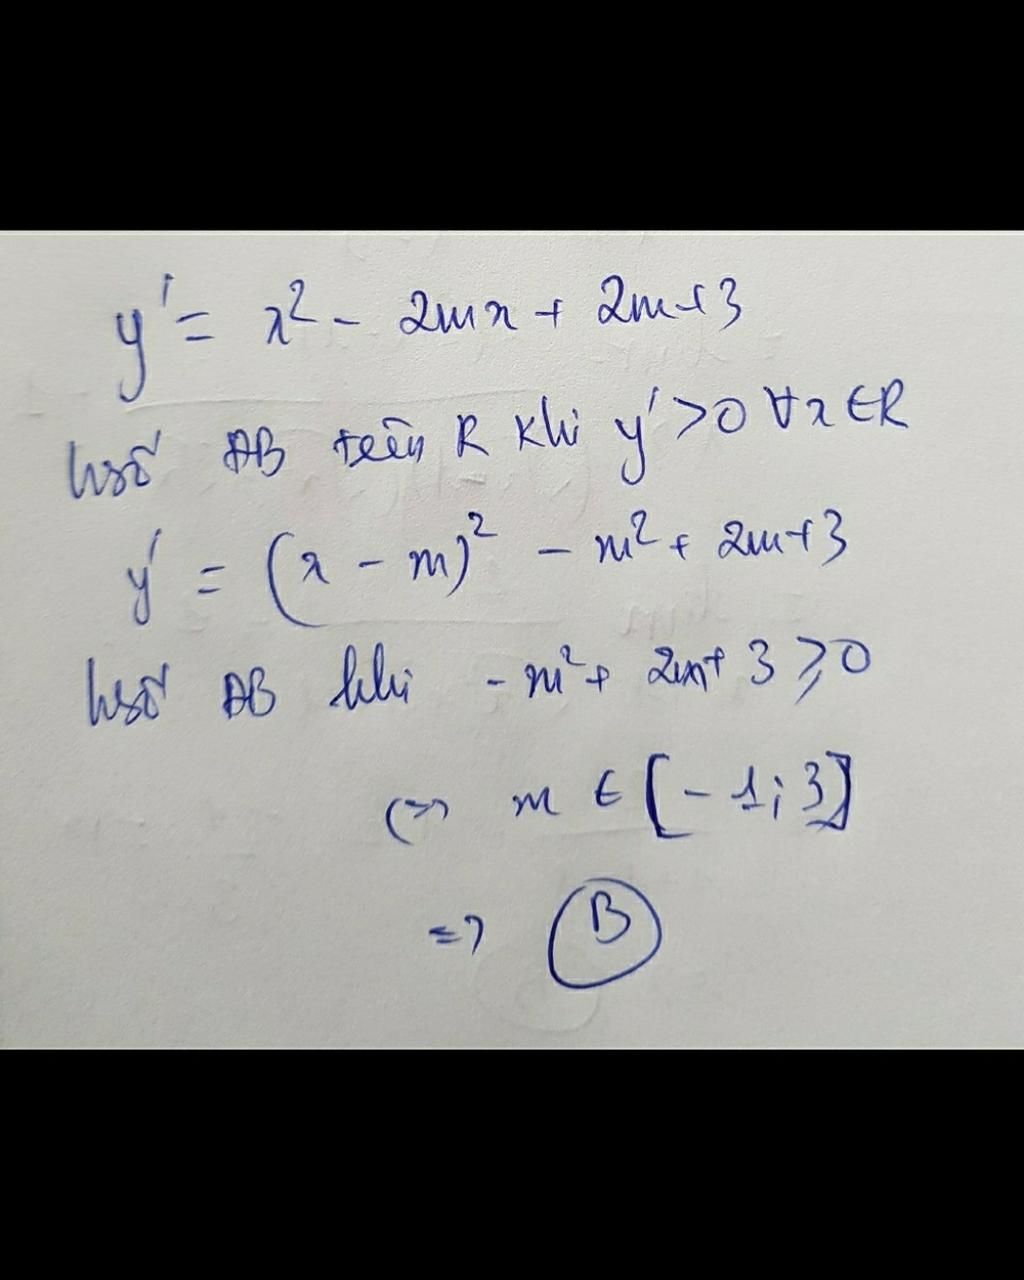 y' = x² - 2mx + 2m+3
hsố ĐB trên R khi y' >0 ∀x ∈R
y' = (x - m)² - m² + 2m+3
hsố ĐB khi -m² + 2m+ 3 ⩾0
<=> m ∈ [-1; 3]
=> B